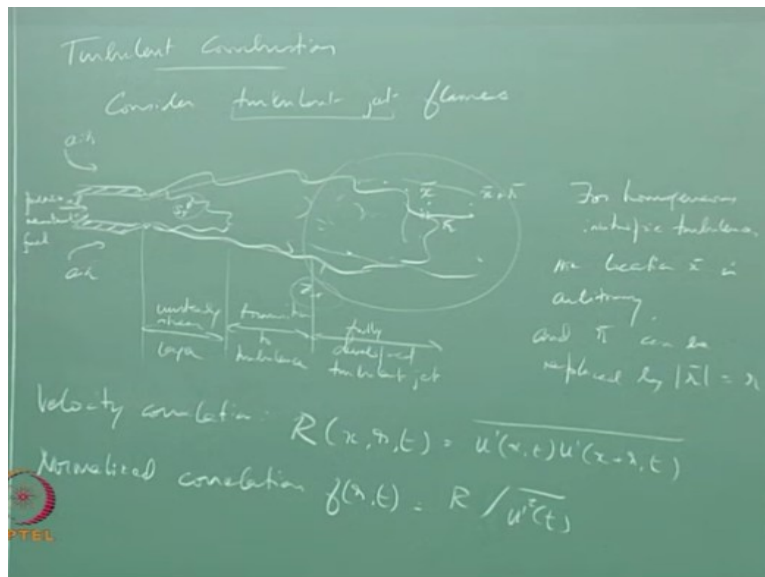 Turbulent Combustion
Consider turbulent jet flames
air
fuel
air
x̄
x̄ + r̄
r̄
unsteady shear layer
transition to turbulence
fully developed turbulent jet
For homogeneous
isotropic turbulence,
the location x̄ is
arbitrary,
and r̄ can be
replaced by |r̄| = r
Velocity correlation: R(x,r,t) = \overline{u'(x,t)u'(x+r,t)}
Normalized correlation f(r,t) = R / \overline{u'²(t)}
PTEL